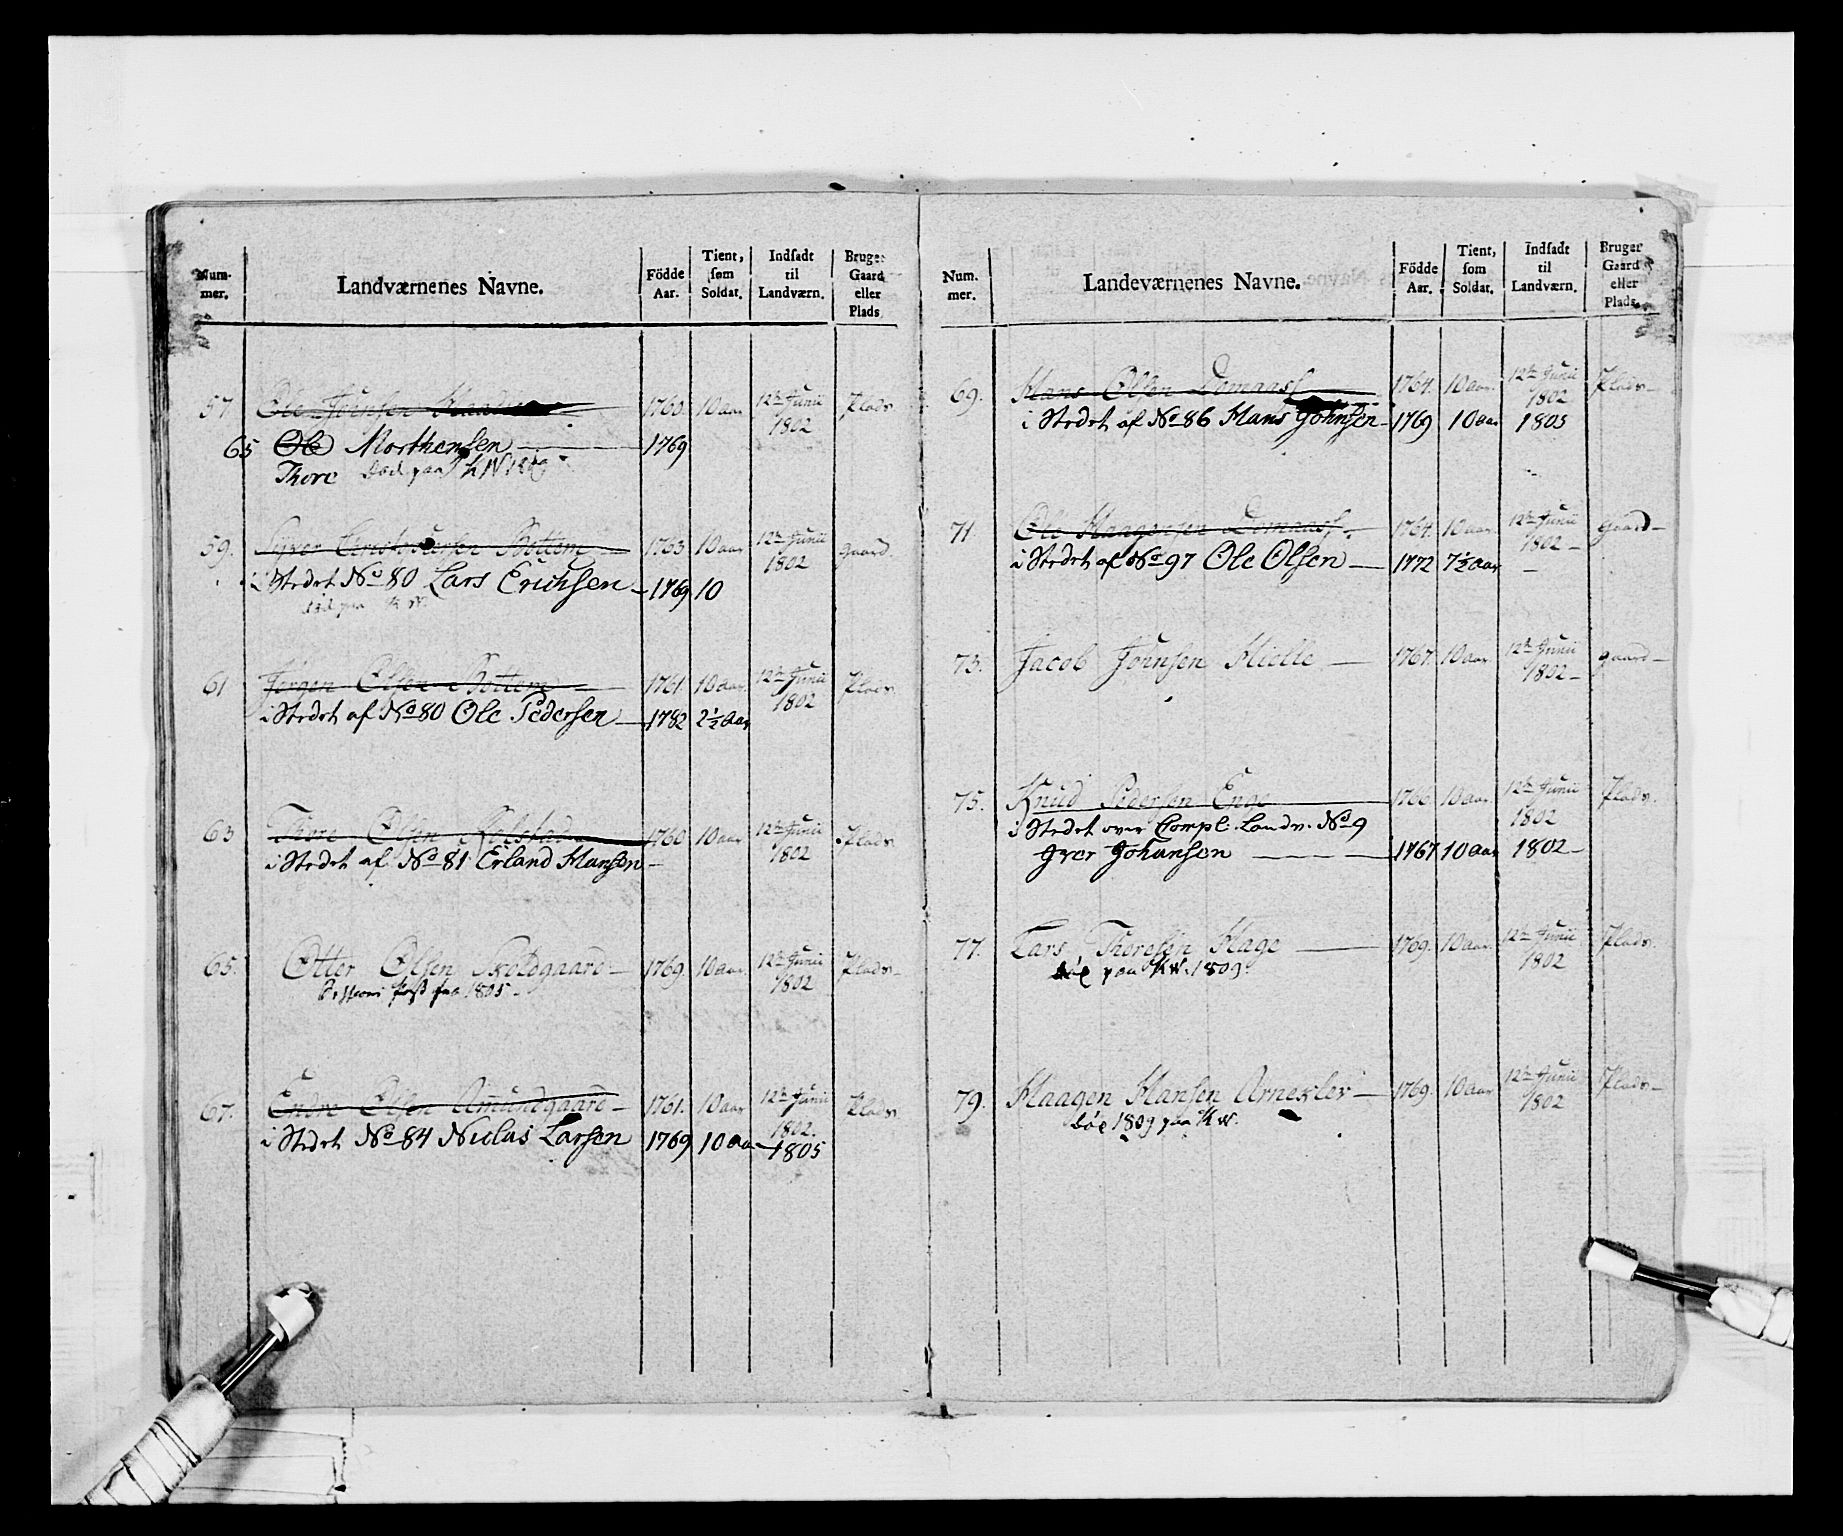 Num-
mer.
Landværnenes Navne.
Födde
Aar.
Tient,
som
Soldat.
Indsadt
til
Landværn.
Bruger
Gaard
eller
Plads
57. Ole Johnsen 1760. 10 aar 12te Junii 1802 Plads
65 Ole Morthensen 1769
Thore Död paa K V 1809
59. Syver Christophersen Bottem 1763 10 aar 12te Junii 1802 gaard
i Stedet No 80 Lars Erichsen 1769 10
död paa K V.
61 Jørgen Olsen Bottem 1761. 10 aar 12te Junii 1802 Plads
i Stedet af No 80 Ole Pedersen 1782 2½ Aar
63 Thore Olsen Kolstad 1760 10 aar 12te Junii 1802 Plads
i Stedet af No 81 Erland Hansen
65. Otter Olsen Skotgaard 1769. 10 aar. 12te Junii 1802 Plads
1805.
67. Endre Olsen Amundgaard 1761. 10 aar 12te Junii 1802. Plads
i Stedet No 84 Niclas Larsen 1769 10 aar 1805
Num.
mer.
Landeværnenes Navne.
Födde
Aar.
Tient,
som
Soldat.
Indsadt
til
Landværn.
Bruger
Gaard
eller
Plads.
69. Hans Olsen Domaas 1764. 10 aar. 12te Junii 1802 Plads
i Stedet af No 86 Hans Johnsen 1769 10 aar 1805
71 Ole Haagensen Domaas 1764. 10 aar 12te Junii 1802 gaard
i Stedet af No 97 Ole Olsen 1772 7½ aar
73. Jacob Johnsen Hielle 1767. 10 aar 12te Junii 1802 gaard
75. Knud Pedersen Enge 1766. 10 aar. 12te Junii 1802 Plads.
i Stedet over Compl. Landv. No 9
Iver Johansen 1767 10 aar 1802
77. Lars Thoresen Hage 1769. 10 aar. 12te Junii 1802 Plads.
död paa K V. 1809.
79. Haagen Hansen Arnekler 1769. 10 aar 12te Junii 1802 Plads
död 1809 paa K V.